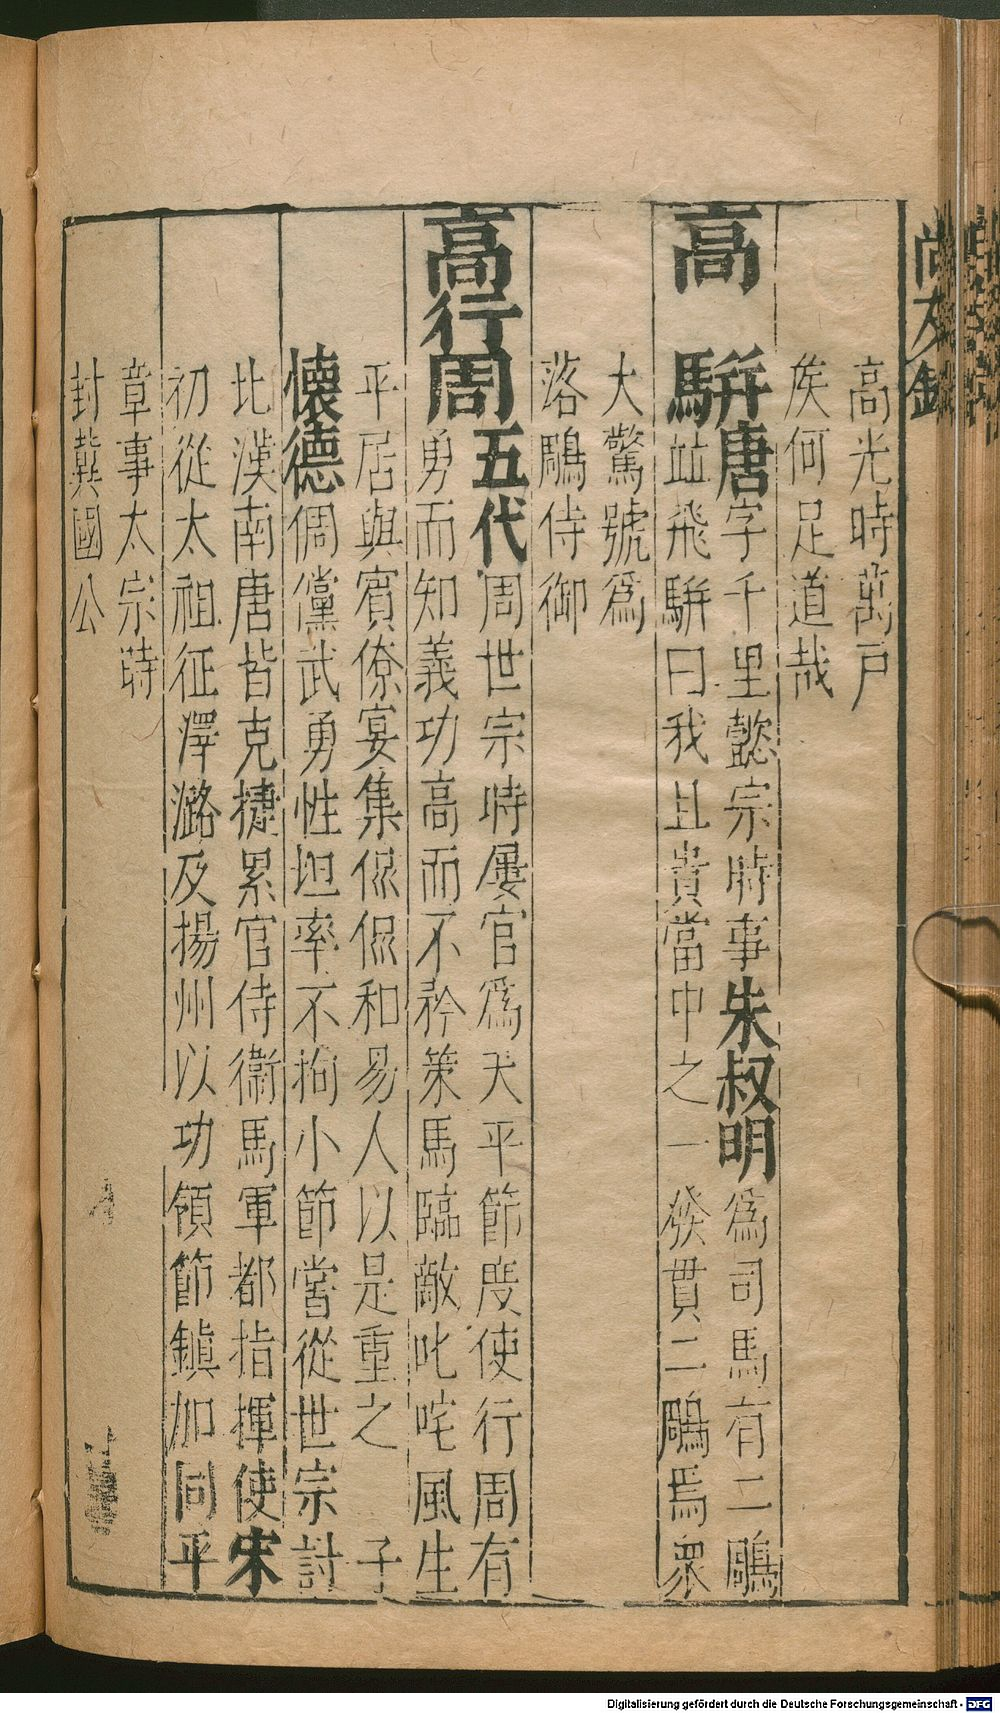 尚友錄
高光時萬戶
矦何足道哉
高駢唐字千里懿宗時事朱叔明爲司馬有二鵰
竝飛駢曰我且貴當中之一發貫二鵰焉衆
大驚號爲
落鵰侍御
高行周五代周世宗時屢官爲天平節度使行周有
勇而知義功高而不矜策馬臨敵叱咤風生
平居與賓僚宴集侃侃和易人以是重之 子
懷德倜儻武勇性坦率不拘小節嘗從世宗討
比漢南唐皆克捷累官侍衞馬軍都指揮使宋
初從太祖征澤潞及揚州以功領節鎭加同平
章事太宗時
封冀國公
Digitalisierung gefördert durch die Deutsche Forschungsgemeinschaft - DFG